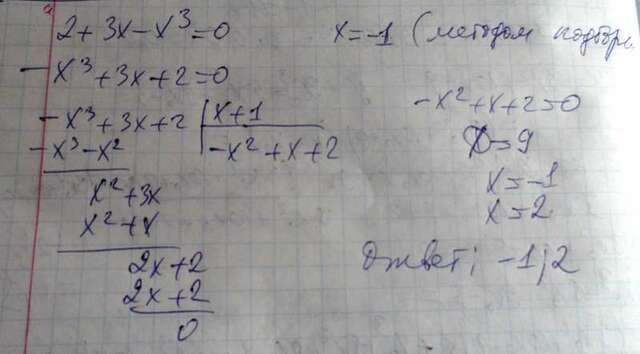 2+3x-x³=0
x=-1 (методом подбора
-x³+3x+2=0
-x³+3x+2 | x+1
-x³-x² | -x²+x+2
x²+3x
x²+x
2x+2
2x+2
0
-x²+x+2=0
D=9
x=-1
x=2
Ответ: -1;2